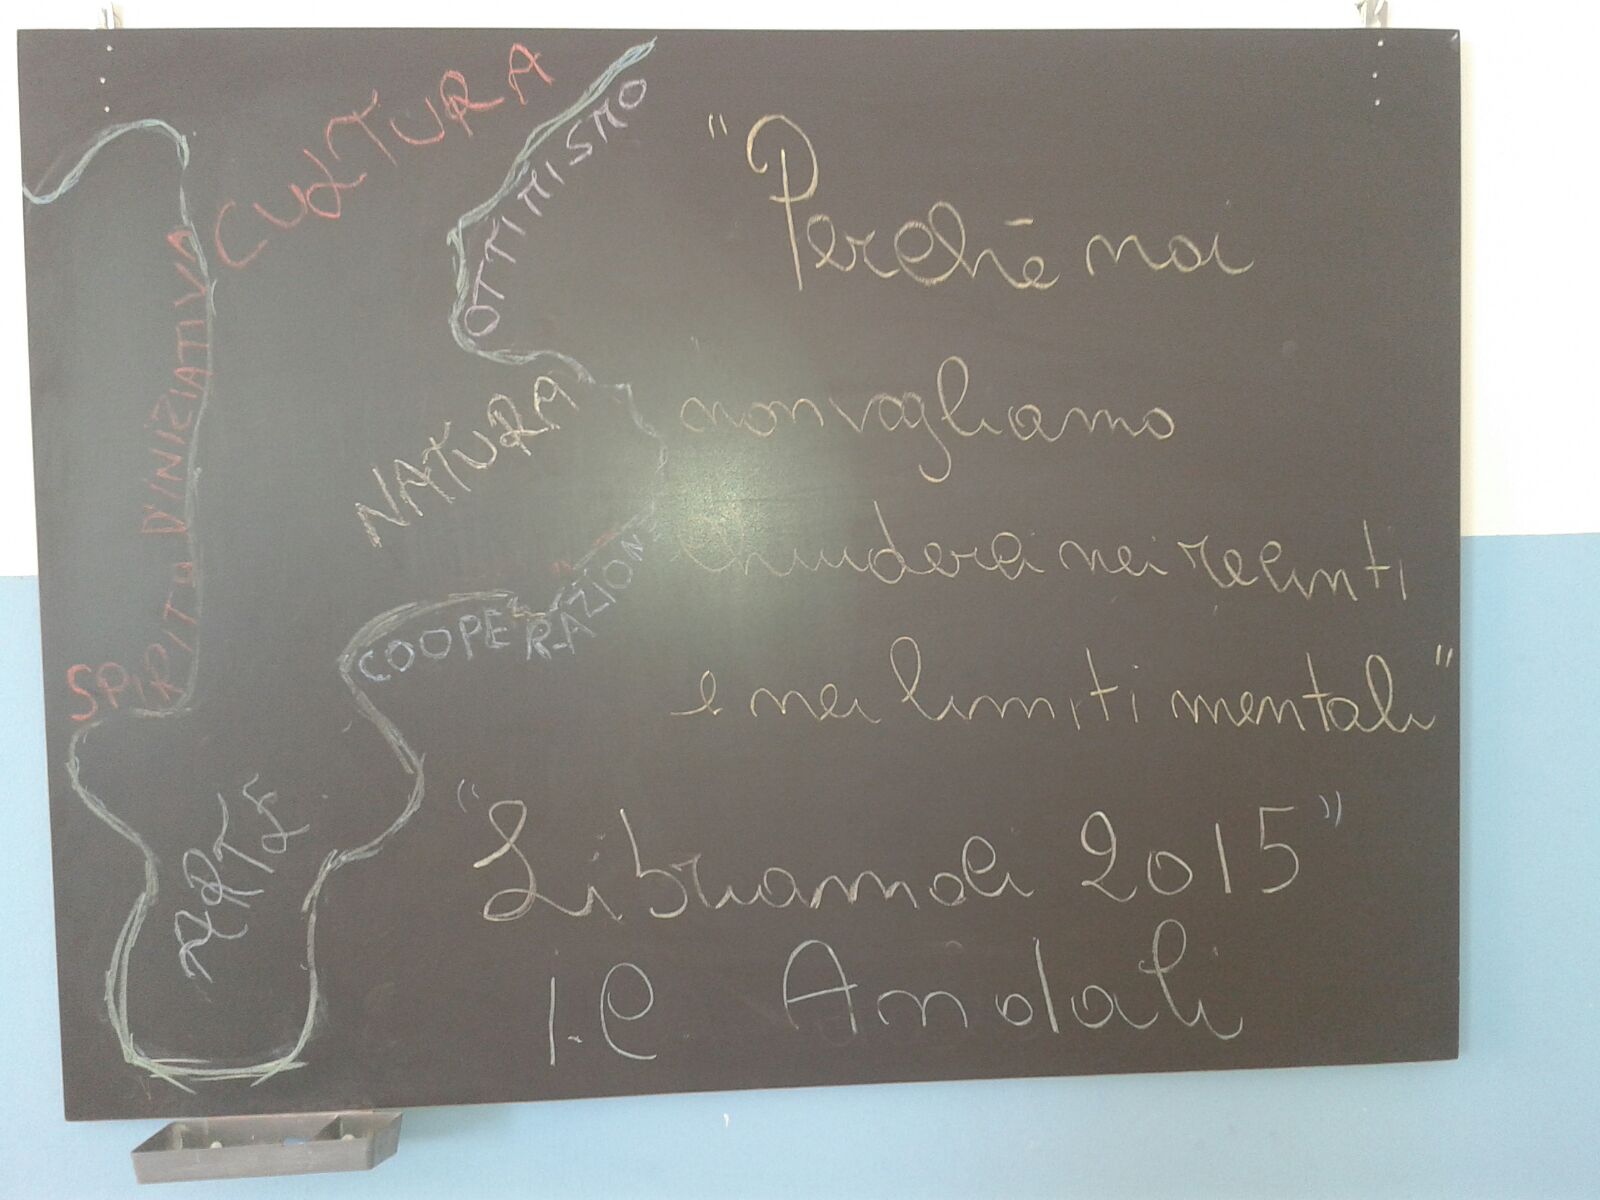 CULTURA
OTTIMISMO
SPIRITO D'INIZIATIVA
NATURA
COOPERAZIONE
ARTE
"Perchè noi
non vogliamo
chiuderci nei recinti
e nei limiti mentali"
"Libriamoci 2015"
I.C Andali